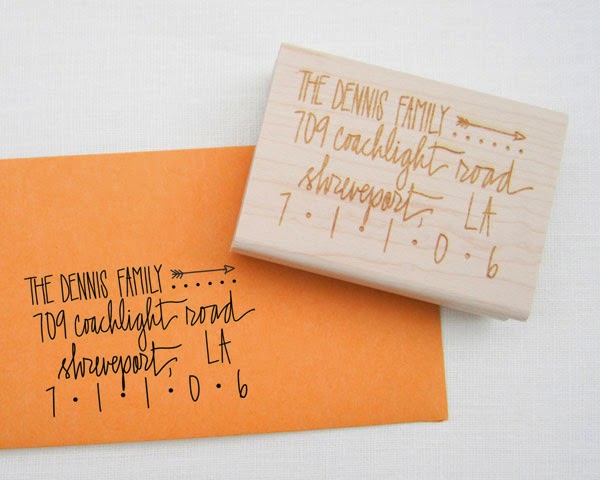 THE DENNIS FAMILY
709 coachlight road
shreveport, LA
7 • 1 • 1 • 0 • 6
THE DENNIS FAMILY
709 coachlight road
shreveport, LA
7 • 1 • 1 • 0 • 6